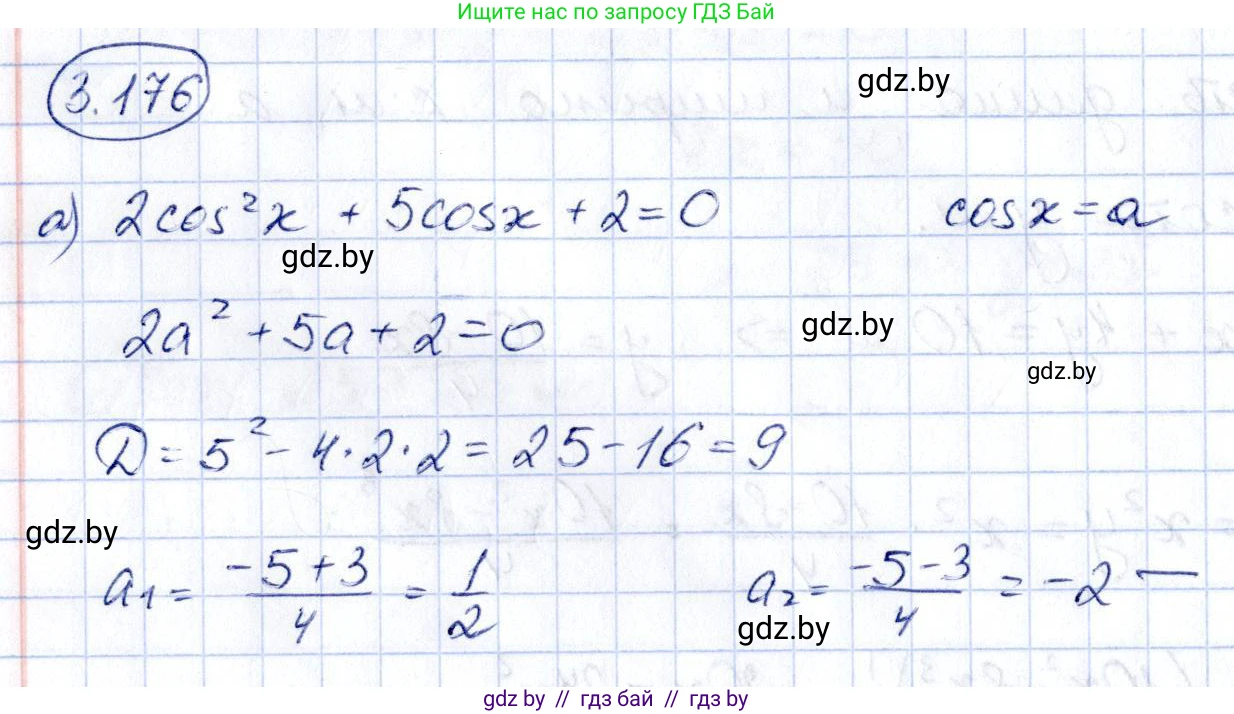 Ищите нас по запросу ГДЗ Бай
3.176
gdz.by
а) 2cos²x + 5cosx + 2 = 0 cosx = a
gdz.by
2a² + 5a + 2 = 0
gdz.by
gdz.by
D = 5² - 4·2·2 = 25 - 16 = 9
gdz.by
a₁ = (-5+3)/4 = 1/2 a₂ = (-5-3)/4 = -2 —
gdz.by
gdz.by // гдз бай // гдз by